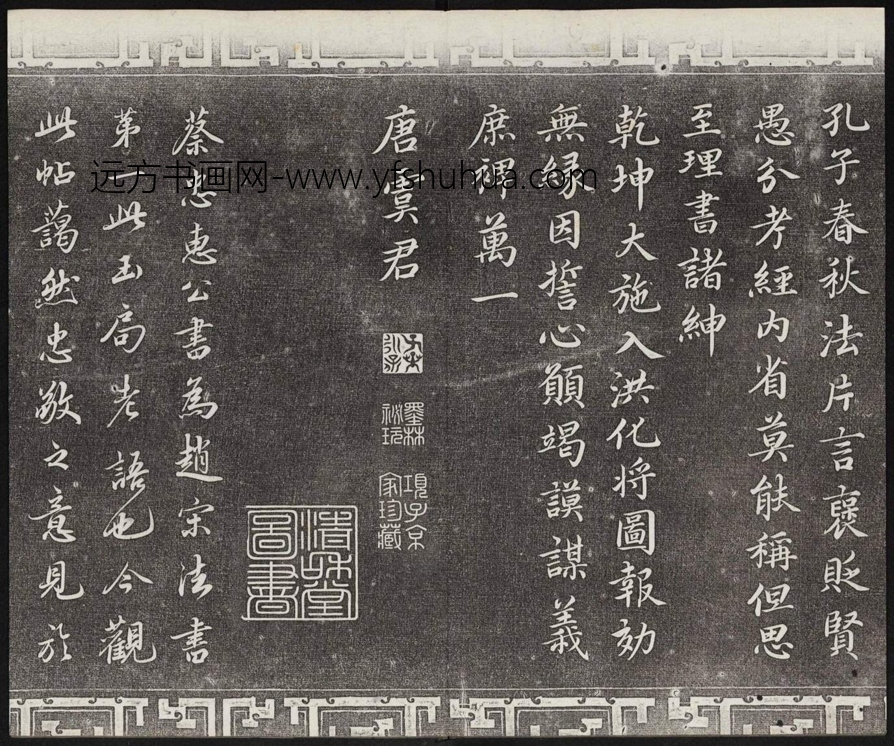 孔子春秋法片言褒貶賢
愚分考經內省莫能稱但思
至理書諸紳
乾坤大施入洪化将圖報効
無緣因誓心願竭謨謀義
庶裨萬一
唐虞君
墨林
祕玩
項子京
家珍藏
蔡忠惠公書為趙宋法書
第一此玉局老語也今觀
此帖藹然忠敬之意見於
远方书画网-www.yfshuhua.com